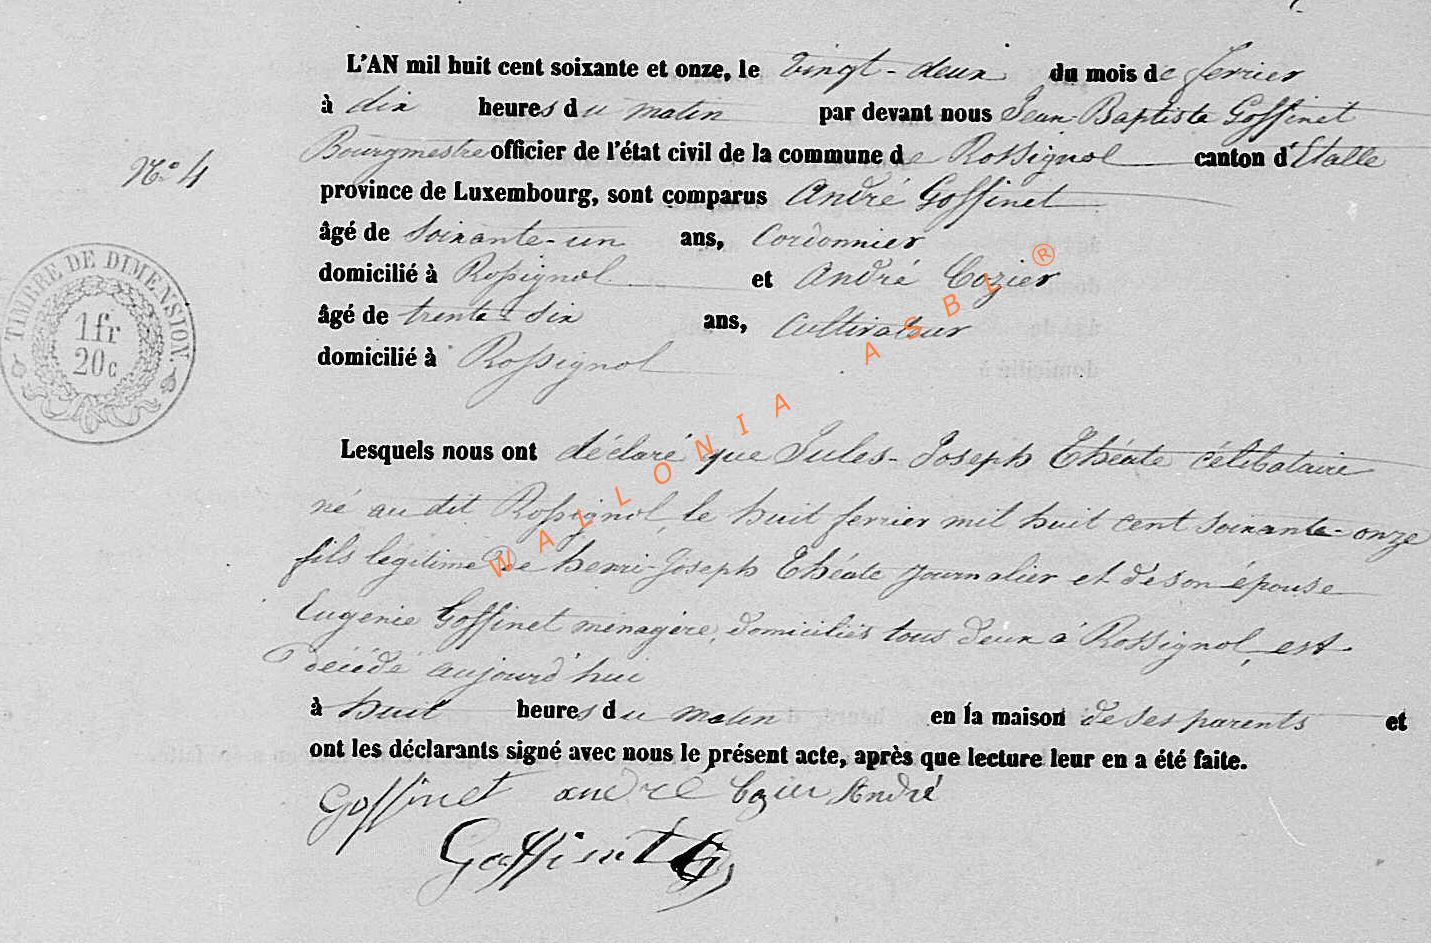 L'AN mil huit cent soixante et onze, le vingt-deux du mois de fevrier
à dix heures du matin par devant nous Jean-Baptiste Goffinet
Bourgmestre officier de l'état civil de la commune de Rossignol canton d'Etalle
N° 4
province de Luxembourg, sont comparus André Goffinet
âgé de soixante-un ans, cordonnier
domicilié à Rossignol et André Cozier
âgé de trente-six ans, cultivateur
domicilié à Rossignol
TIMBRE DE DIMENSION
1fr
20c
Lesquels nous ont déclaré que Jules-Joseph Théate célibataire
né au dit Rossignol, le huit fevrier mil huit cent soixante-onze
fils légitime de henri-Joseph Théate journalier et de son épouse
Eugenie Goffinet ménagère, domiciliés tous deux à Rossignol, est
décédé aujourd'hui
à huit heures du matin en la maison de ses parents et
ont les déclarants signé avec nous le présent acte, après que lecture leur en a été faite.
Goffinet andré Cozier André
Goffinet
WALLONIA ASBL ®